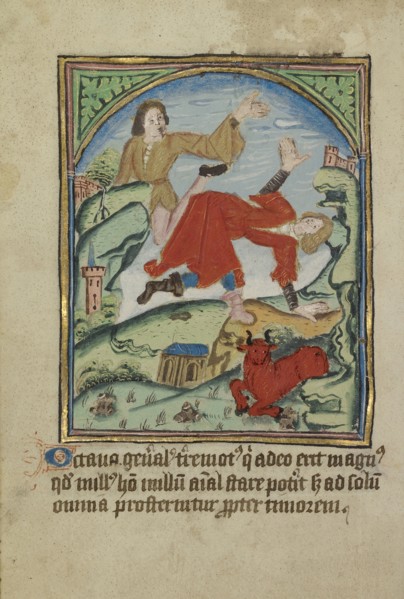 Octaua gen̄al' t̄remot' q̄ adeo erit magn'
qd null' hō nullū aīal stare pot̄it s; ad solū
omnia prosternūtur ꝓpter timorem.